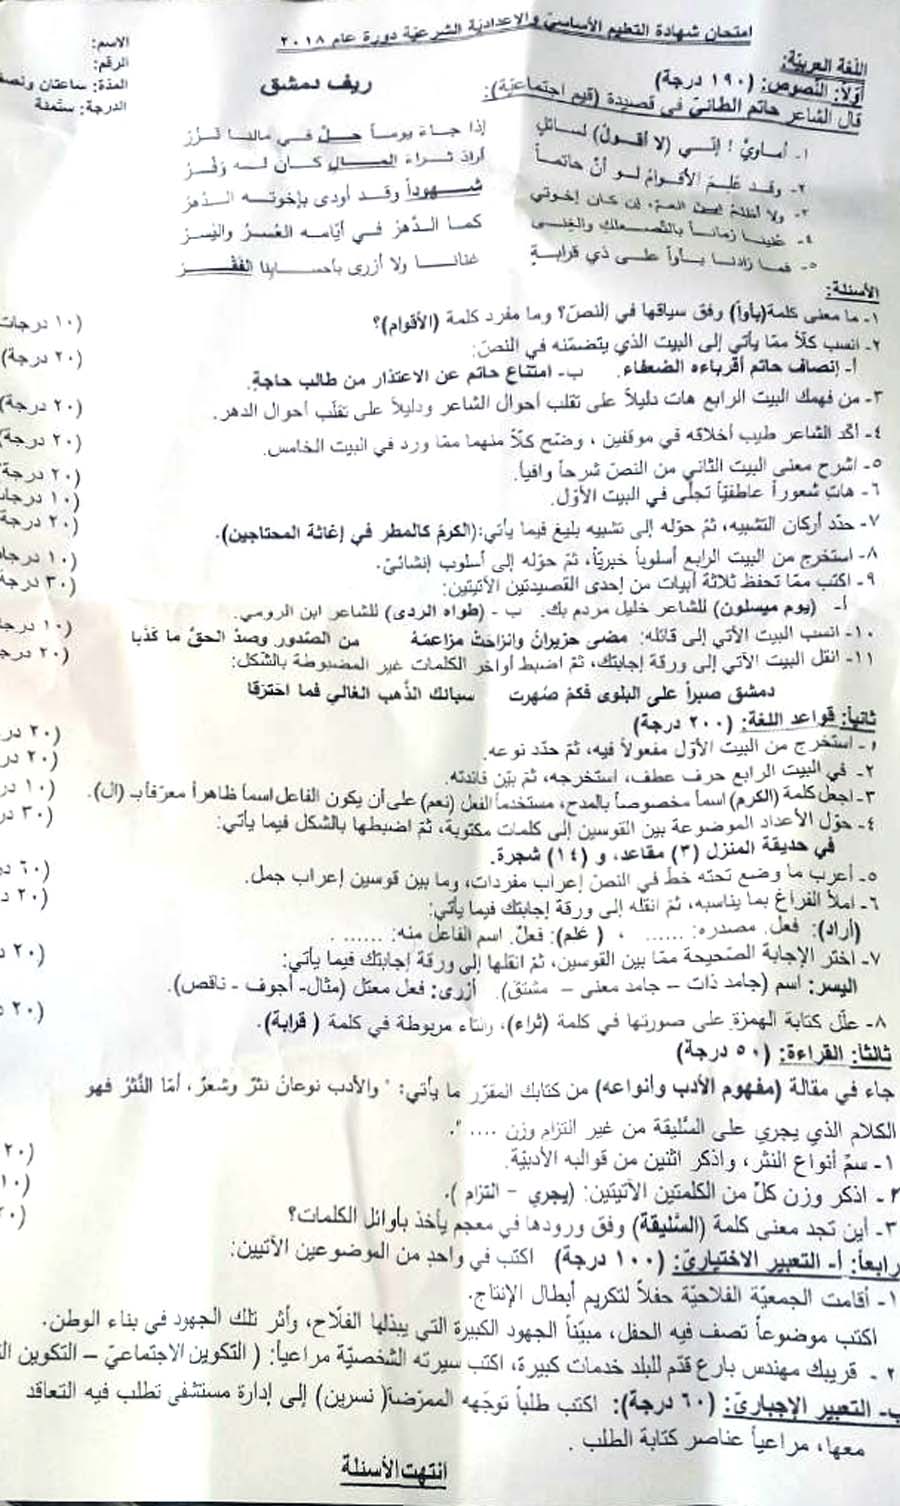 امتحان شهادة التعليم الأساسيّ والإعداديّة الشرعيّة دورة عام ٢٠١٨
الاسم:
الرقم:
المدّة: ساعتان ونصف
الدرجة: ستّمئة
اللّغة العربيّة:
ريف دمشق
أوّلاً: النّصوص: (١٩٠ درجة)
قال الشاعر حاتم الطائيّ في قصيدة (قيم اجتماعيّة):
١- أماويَّ ! إنّي (لا أقولُ) لسائلٍ إذا جاءَ يوماً حلَّ في مالنا نَزْرُ
٢- وقد عَلِمَ الأقوامُ لو أنّ حاتماً أرادَ ثراءَ المــالِ كان لـه وَفْــرُ
٣- ولا أظلمُ ابنَ العمِّ، إن كان إخوتي شهوداً وقد أودى بإخوته الدهرُ
٤- غنينا زماناً بالتّصعلك والغِنى كما الدّهرُ في أيّامه العُسرُ واليُسرُ
٥- فما زادنا بأواً على ذي قرابةٍ غنانا ولا أزرى بأحسابنا الفَقْـرُ
الأسئلة:
١- ما معنى كلمة (بأواً) وفق سياقها في النصّ؟ وما مفرد كلمة (الأقوام)؟ (١٠ درجات
٢- انسب كلّاً ممّا يأتي إلى البيت الذي يتضمّنه في النصّ: (٢٠ درجة)
أ- إنصاف حاتم أقرباءه الضعفاء. ب- امتناع حاتم عن الاعتذار من طالب حاجةٍ.
٣- من فهمك البيت الرابع هات دليلاً على تقلب أحوال الشاعر ودليلاً على تقلّب أحوال الدهر. (٢٠ درجة)
٤- أكّد الشاعر طيب أخلاقه في موقفين ، وضّح كلّاً منهما ممّا ورد في البيت الخامس. (٢٠ درجة)
٥- اشرح معنى البيت الثاني من النصّ شرحاً وافياً. (٢٠ درجة
٦- هاتِ شعوراً عاطفيّاً تجلّى في البيت الأوّل. (١٠ درجات
٧- حدّد أركان التشبيه، ثمّ حوّله إلى تشبيه بليغ فيما يأتي:(الكرمُ كالمطر في إغاثة المحتاجين). (٢٠ درجة
٨- استخرج من البيت الرابع أسلوباً خبريّاً، ثمّ حوّله إلى أسلوب إنشائيّ. (١٠ درجات
٩- اكتب ممّا تحفظ ثلاثة أبيات من إحدى القصيدتين الآتيتين: (٣٠ درجة
أ- (يوم ميسلون) للشاعر خليل مردم بك. ب - (طواه الردى) للشاعر ابن الرومي.
١٠- انسب البيت الآتي إلى قائله: مضى حزيرانُ وانزاحَتْ مزاعمَهُ من الصّدور وصدَّ الحقُّ ما كَذَبا (١٠ درجا
١١- انقل البيت الآتي إلى ورقة إجابتك، ثمّ اضبط أواخر الكلمات غير المضبوطة بالشّكل: (٢٠ درجة
دمشق صبراً على البلوى فكمْ صُهرت سبائك الذّهب الغالي فما احترَقا
ثانياً: قواعد اللغة: (٢٠٠ درجة)
١- استخرج من البيت الأوّل مفعولاً فيه، ثمّ حدّد نوعه. (٢٠ در
٢- في البيت الرابع حرف عطف، استخرجه، ثمّ بيّن فائدته. (٢٠ در
٣-اجعل كلمة (الكرم) اسماً مخصوصاً بالمدح، مستخدماً الفعل (نعم) على أن يكون الفاعل اسماً ظاهراً معرّفاً بـ (ال). (١٠ در
٤- حوّل الأعداد الموضوعة بين القوسين إلى كلمات مكتوبة، ثمّ اضبطها بالشكل فيما يأتي: (٣٠ در
في حديقة المنزل (٣) مقاعد، و (١٤) شجرة.
٥- أعرب ما وضع تحته خطّ في النصّ إعراب مفردات، وما بين قوسين إعراب جمل. (٦٠ در
٦- املأ الفراغ بما يناسبه، ثمّ انقله إلى ورقة إجابتك فيما يأتي: (٢٠ د
(أراد): فعل. مصدره: ...... ، ( عَلم): فعلٌ. اسم الفاعل منه: ...... .
٧- اختر الإجابة الصّحيحة ممّا بين القوسين، ثمّ انقلها إلى ورقة إجابتك فيما يأتي: (٢٠ د
اليسر: اسم (جامد ذات - جامد معنى - مشتق). أزرى: فعل معتل (مثال- أجوف - ناقص).
٨- علّل كتابة الهمزة على صورتها في كلمة (ثراء)، والتاء مربوطة في كلمة ( قرابة). (٢٠
ثالثاً: القراءة: (٥٠ درجة)
جاء في مقالة (مفهوم الأدب وأنواعه) من كتابك المقرّر ما يأتي: " والأدب نوعانِ نثرٌ وشعرٌ، أمّا النّثرُ فهو
الكلام الذي يجري على السّليقة من غير التزام وزن .... ".
١- سمِّ أنواع النثر، واذكر اثنين من قوالبه الأدبيّة. (٢٠
٢- اذكر وزن كلٍّ من الكلمتين الآتيتين: (يجري - التزام ). (١٠
٣- أين تجد معنى كلمة (السّليقة) وفق ورودها في معجم يأخذ بأوائل الكلمات؟ (٢٠
رابعاً: أ- التعبير الاختياريّ: (١٠٠ درجة) اكتب في واحدٍ من الموضوعين الآتيين:
١- أقامت الجمعيّة الفلاحيّة حفلاً لتكريم أبطال الإنتاج.
اكتب موضوعاً تصف فيه الحفل، مبيّناً الجهود الكبيرة التي يبذلها الفلّاح، وأثر تلك الجهود في بناء الوطن.
٢- قريبك مهندس بارع قدّم للبلد خدمات كبيرة، اكتب سيرته الشخصيّة مراعياً: ( التكوين الاجتماعيّ - التكوين
ب- التعبير الإجباريّ: (٦٠ درجة): اكتب طلباً توجّهه الممرّضة( نسرين) إلى إدارة مستشفى تطلب فيه التعاقد
معها، مراعياً عناصر كتابة الطلب .
انتهت الأسئلة